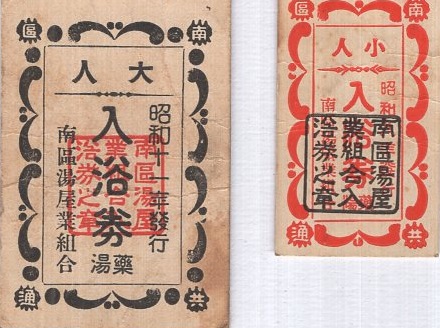 南區
大人
昭和十一年發行
入浴券
藥湯
南區湯屋業組合
共通
南區湯屋
業組合入
浴券之章
南區
小人
昭和
入浴券
南
共通
南區湯屋
業組合入
浴券之章